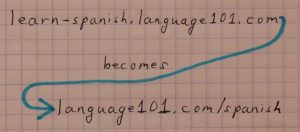 learn-spanish.language101.com
becomes
language101.com/spanish